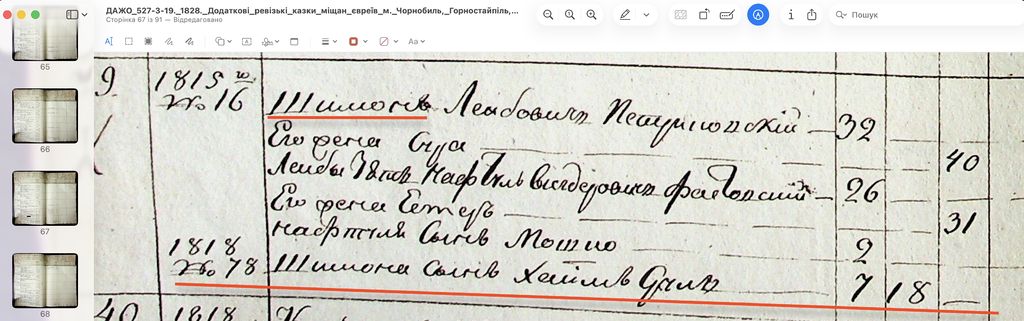 ДАЖО_527-3-19._1828._Додаткові_ревізькі_казки_міщан_євреїв_м._Чорнобиль,_Горностайпіль,...
Сторінка 67 із 91 — Відредаговано
Пошук
Aa
65
66
67
68
9
1815 го
№ 16
Шимонъ Лейбовичъ — 32
Его жена Сура 40
Лейбы Зять Нафтуль — 26
Его жена Естеръ 31
Нафтули Сынъ Мошко 2
1818
№ 78
Шимона сынъ Хаимъ 7 18
40
1818